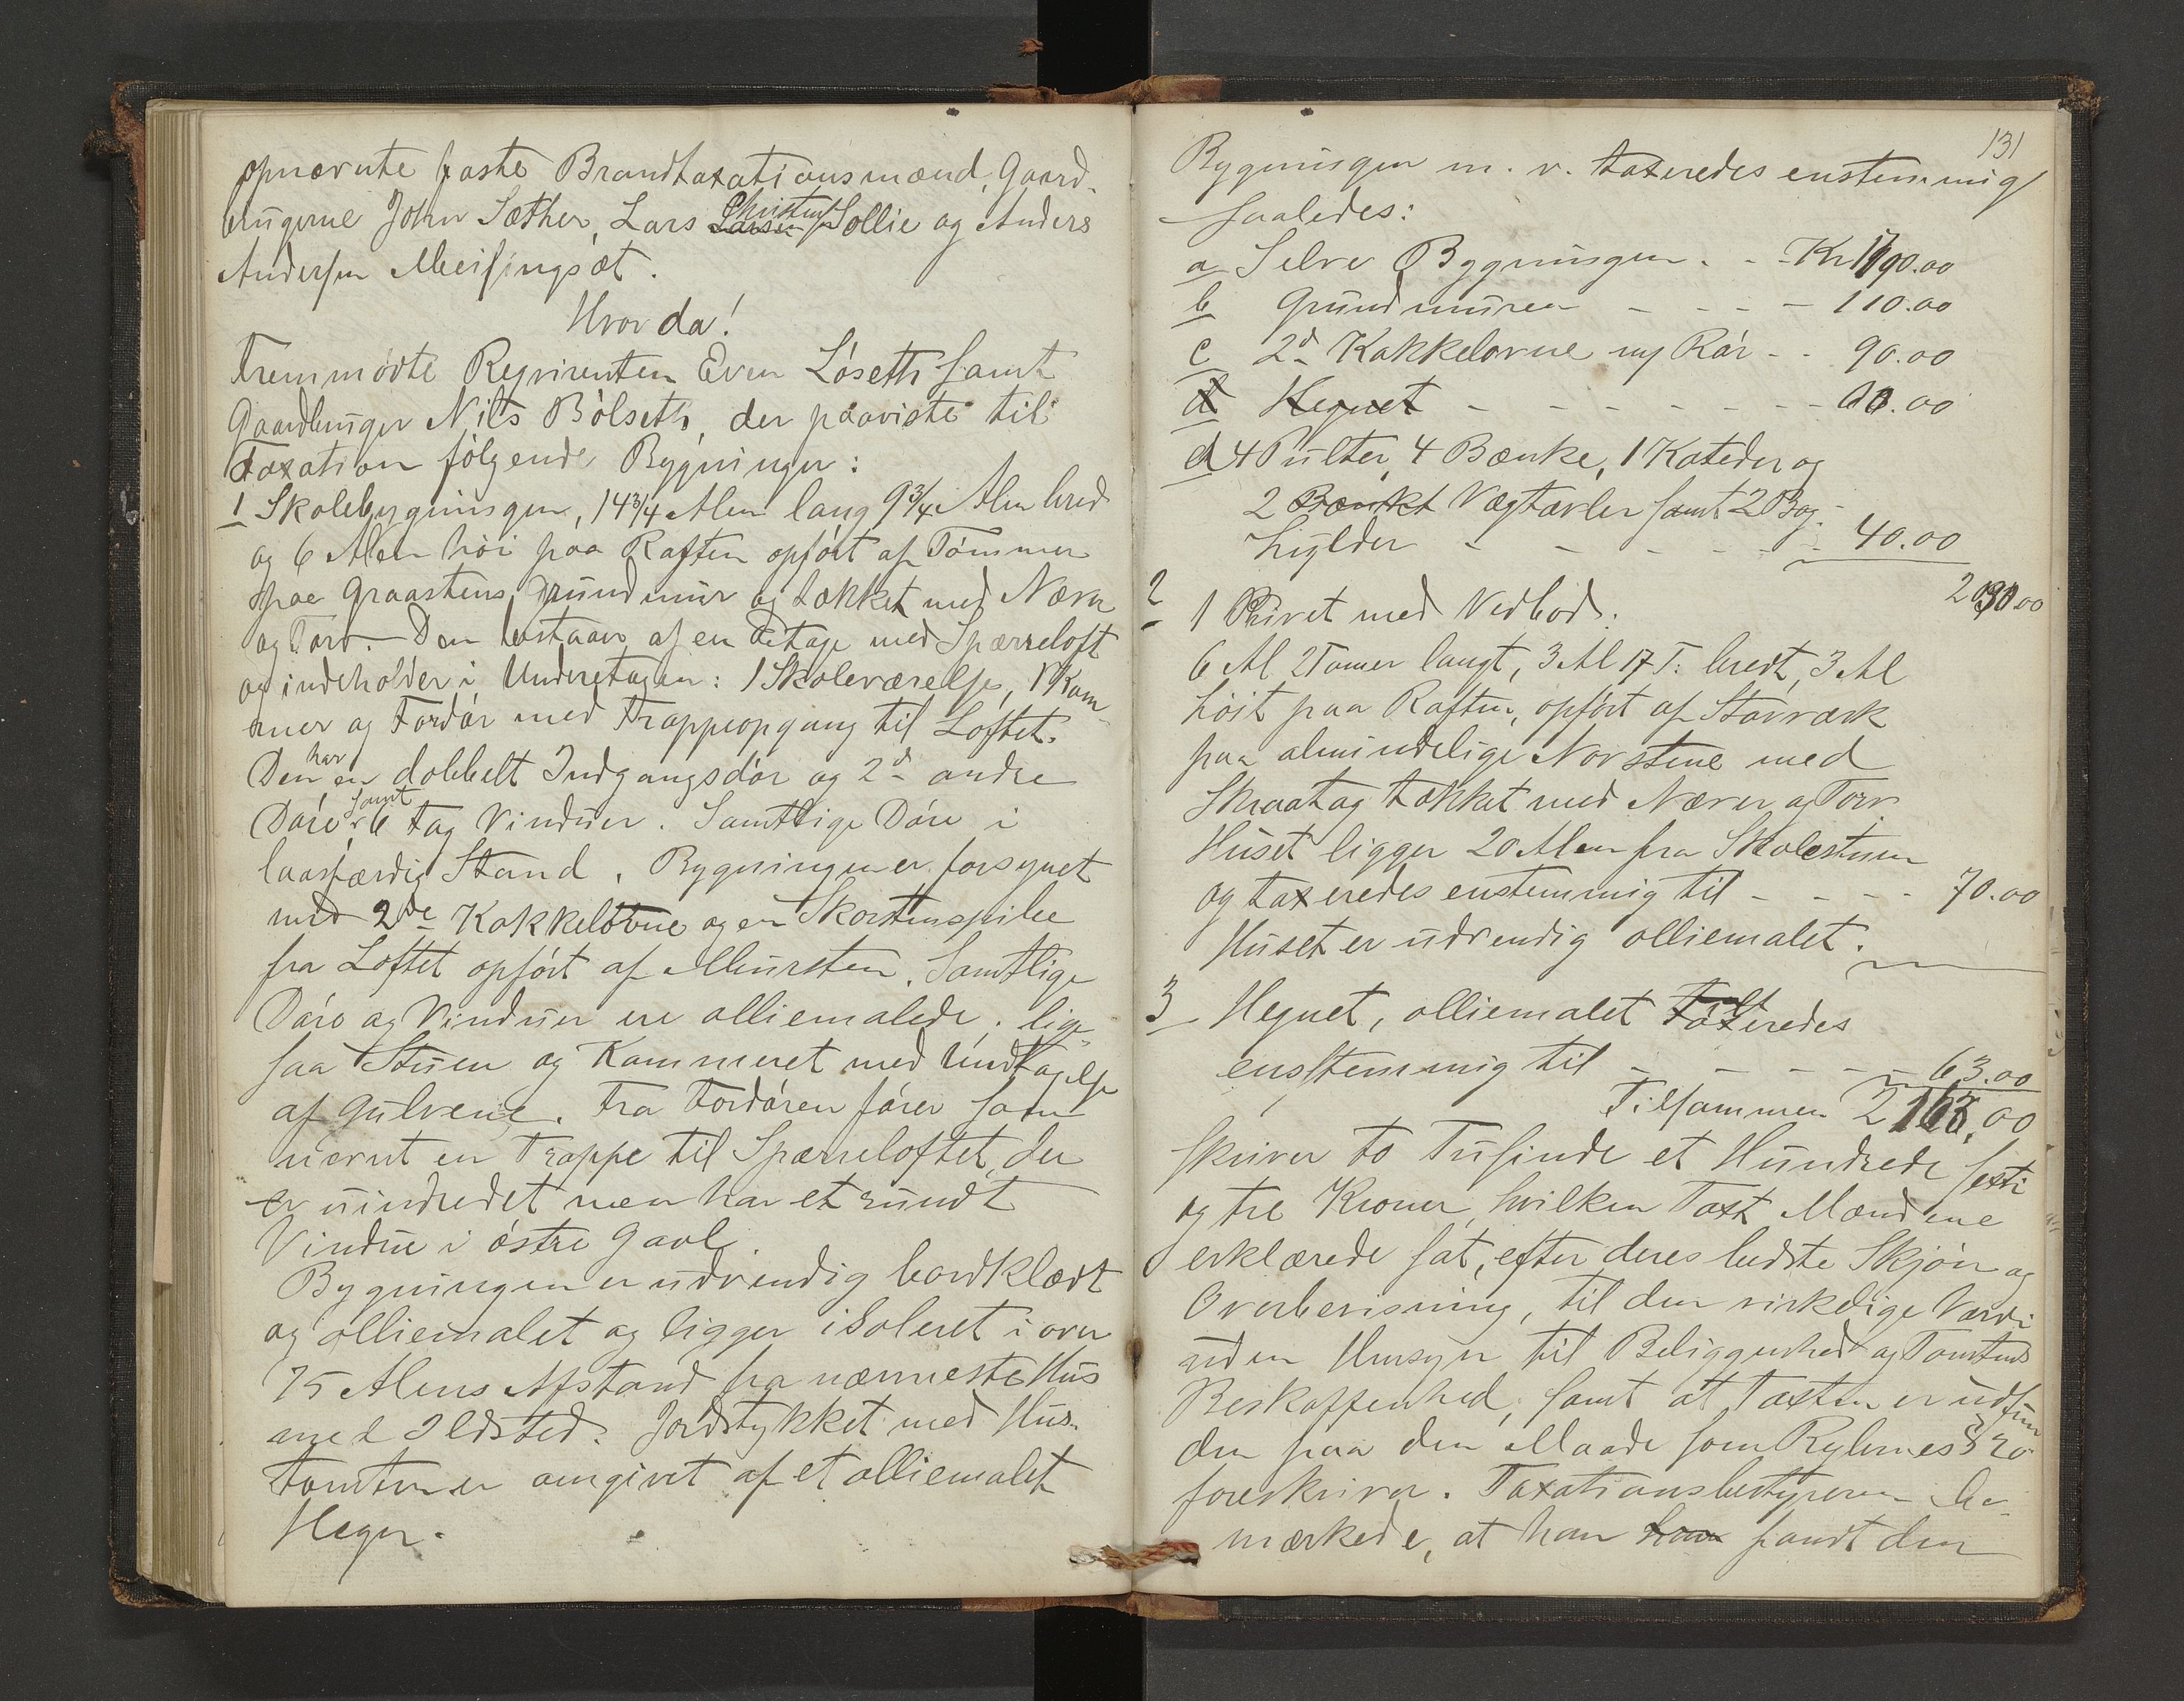 opnævnte faste Brandtaxationsmænd, Gaard-
brugerne John Sæther, Lars Larsen Christens Sollie og Anders
Andersen Meisingsæt.
Hvor da!
Fremmødte Repræsenten Even Løseth samt
Gaardbruger Nils Bölseth, der paaviste til
Taxation følgende Bygninger:
1 Skolebygningen, 14 3/4 Alen lang 9 3/4 Alen bred
og 6 Alen høi paa Raften opført af Tømmer
paa Graastens Grundmur og tækket med Næver
og Torv. Den bestaar af en Etage med Spærreloft
og indeholder i Underetagen: 1 Skoleværelse, 1 Kam-
mer og Fordør med Trappeopgang til Loftet.
Den har en dobbelt Indgangsdør og 2d andre
Døre samt 6 fag Vinduer. Samtlige Døre i
laasfærdig Stand. Bygningen er forsynet
med 2de Kakkelovne og en Skorstenspibe
fra Loftet opført af Mursten. Samtlige
Døre og Vinduer ere olliemalede. lige-
saa Stuen og Kammeret med Undtagelse
af Gulvene. Fra Fordøren fører som
nævnt en Trappe til Spærreloftet, der
er uindredet men har et rundt
Vindue i østre Gavl.
Bygningen er udvendig bordklædt
og olliemalet og ligger isoleret i over
75 Alens Afstand fra nærmeste Hus
med Ildsted. Jordstykket med Hus-
tomten er omgivet af et olliemalet
Hegn.
131
Bygningen m. v. taxeredes enstemmig
saaledes:
a Selve Bygningen. - - Kr 1790.00
b Grundmuren - - - - 110.00
c 2d Kakkelovne ny Rør - - 90.00
d Hegnet - - - - - - - -.00
d 4 Pulter, 4 Bænke, 1 Kateder og
2 Bænke Vægtavler samt 2 Bog-
hylder - - - - - - 40.00
2030.00
2 1 Privet med Vedbod:
6 Al 2 Tomer langt, 3 Al 17 T: bredt, 3 Al
høit paa Raften, opført af Stavværk
paa almindelige Novstene med
Skraatag tækket med Næver og Torv.
Huset ligger 20 Alen fra Skolestuen
og taxeredes enstemmig til - - - - 70.00
Huset er udvendig olliemalet.
3 Hegnet, olliemalet Taxeredes
enstemmig til - - - - - 63.00
Tilsammen 2163.00
skriver to Tusinde et Hundrede sexti
og tre Kroner, hvilken Taxt Mændene
erklærede sat, efter deres bedste Skjøn og
Overbevisning, til den virkelige Værdi
uden Hensyn til Beliggenhed og Tomtens
Beskaffenhed, samt at Taxten er udfun-
den paa den Maade som Reglernes § 20
foreskriver. Taxationsbestyreren be-
mærkede, at han han fandt den